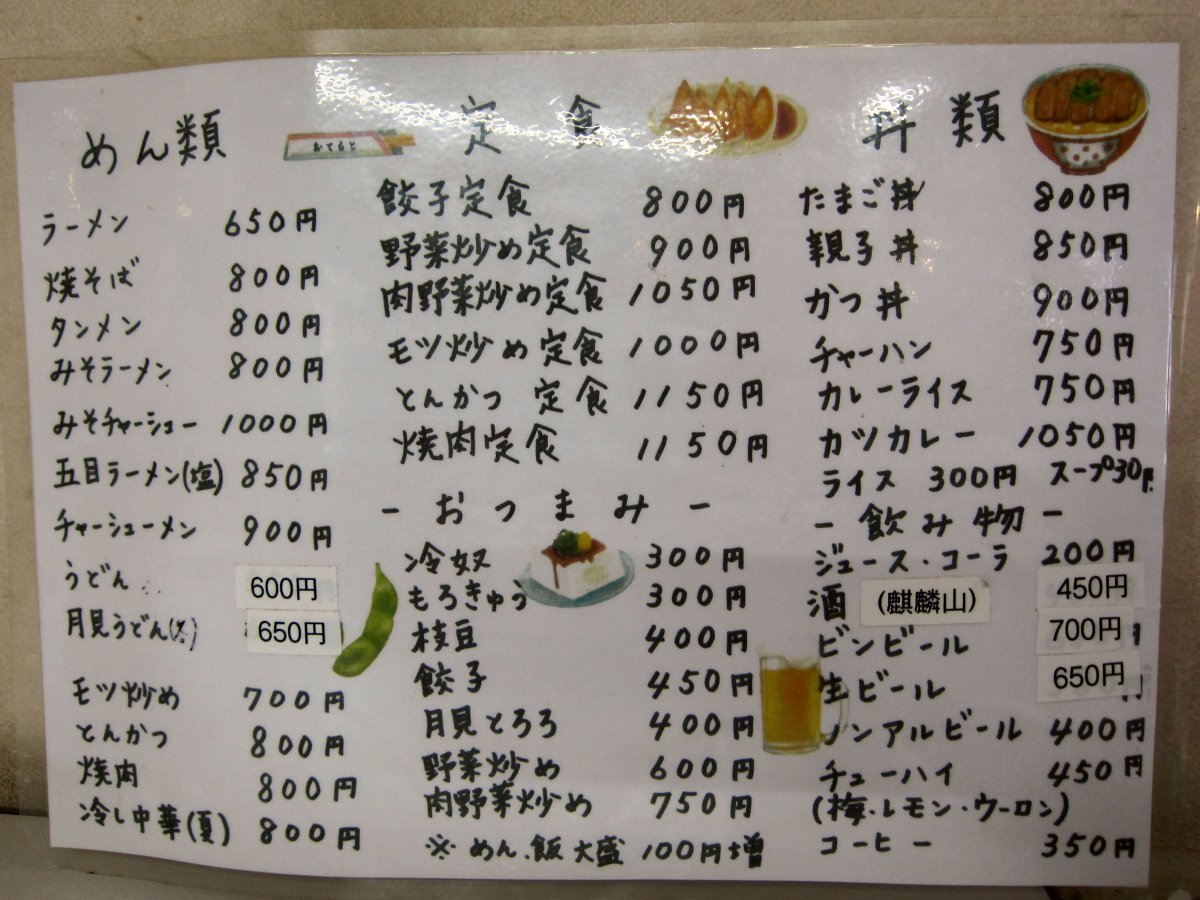 めん類
おてもと
ラーメン 650円
焼そば 800円
タンメン 800円
みそラーメン 800円
みそチャーシュー 1000円
五目ラーメン(塩) 850円
チャーシューメン 900円
うどん 600円
月見うどん(冬) 650円
モツ炒め 700円
とんかつ 800円
焼肉 800円
冷し中華(夏) 800円
定食
餃子定食 800円
野菜炒め定食 900円
肉野菜炒め定食 1050円
モツ炒め定食 1000円
とんかつ定食 1150円
焼肉定食 1150円
- おつまみ -
冷奴 300円
もろきゅう 300円
枝豆 400円
餃子 450円
月見とろろ 400円
野菜炒め 600円
肉野菜炒め 750円
※ めん.飯大盛 100円増
丼類
たまご丼 800円
親子丼 850円
かつ丼 900円
チャーハン 750円
カレーライス 750円
カツカレー 1050円
ライス 300円 スープ30円
- 飲み物 -
ジュース・コーラ 200円
酒 (麒麟山) 450円
ビンビール 700円
生ビール 650円
ノンアルビール 400円
チューハイ 450円
(梅・レモン・ウーロン)
コーヒー 350円